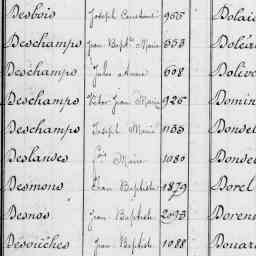 Desbois Joseph 965 Bolai
Deschamps Jean Bapte Marie 553 Boléa
Deschamps Jules André 608 Bolive
Deschamps Victor Jean Marie 926 Domin
Deschamps Joseph Marie 1153 Bonset
Deslandes fois Marie 1080 Bonset
Desmons Jean Baptiste 1879 Borel
Desnos Jean Baptiste 2093 Doren
Désouches Jean Baptiste 1088 Douar